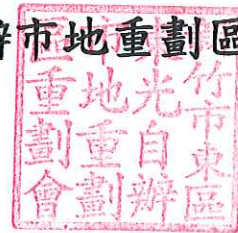 辦市地重劃區
竹市東區
光自辦
市地重劃
區重劃會